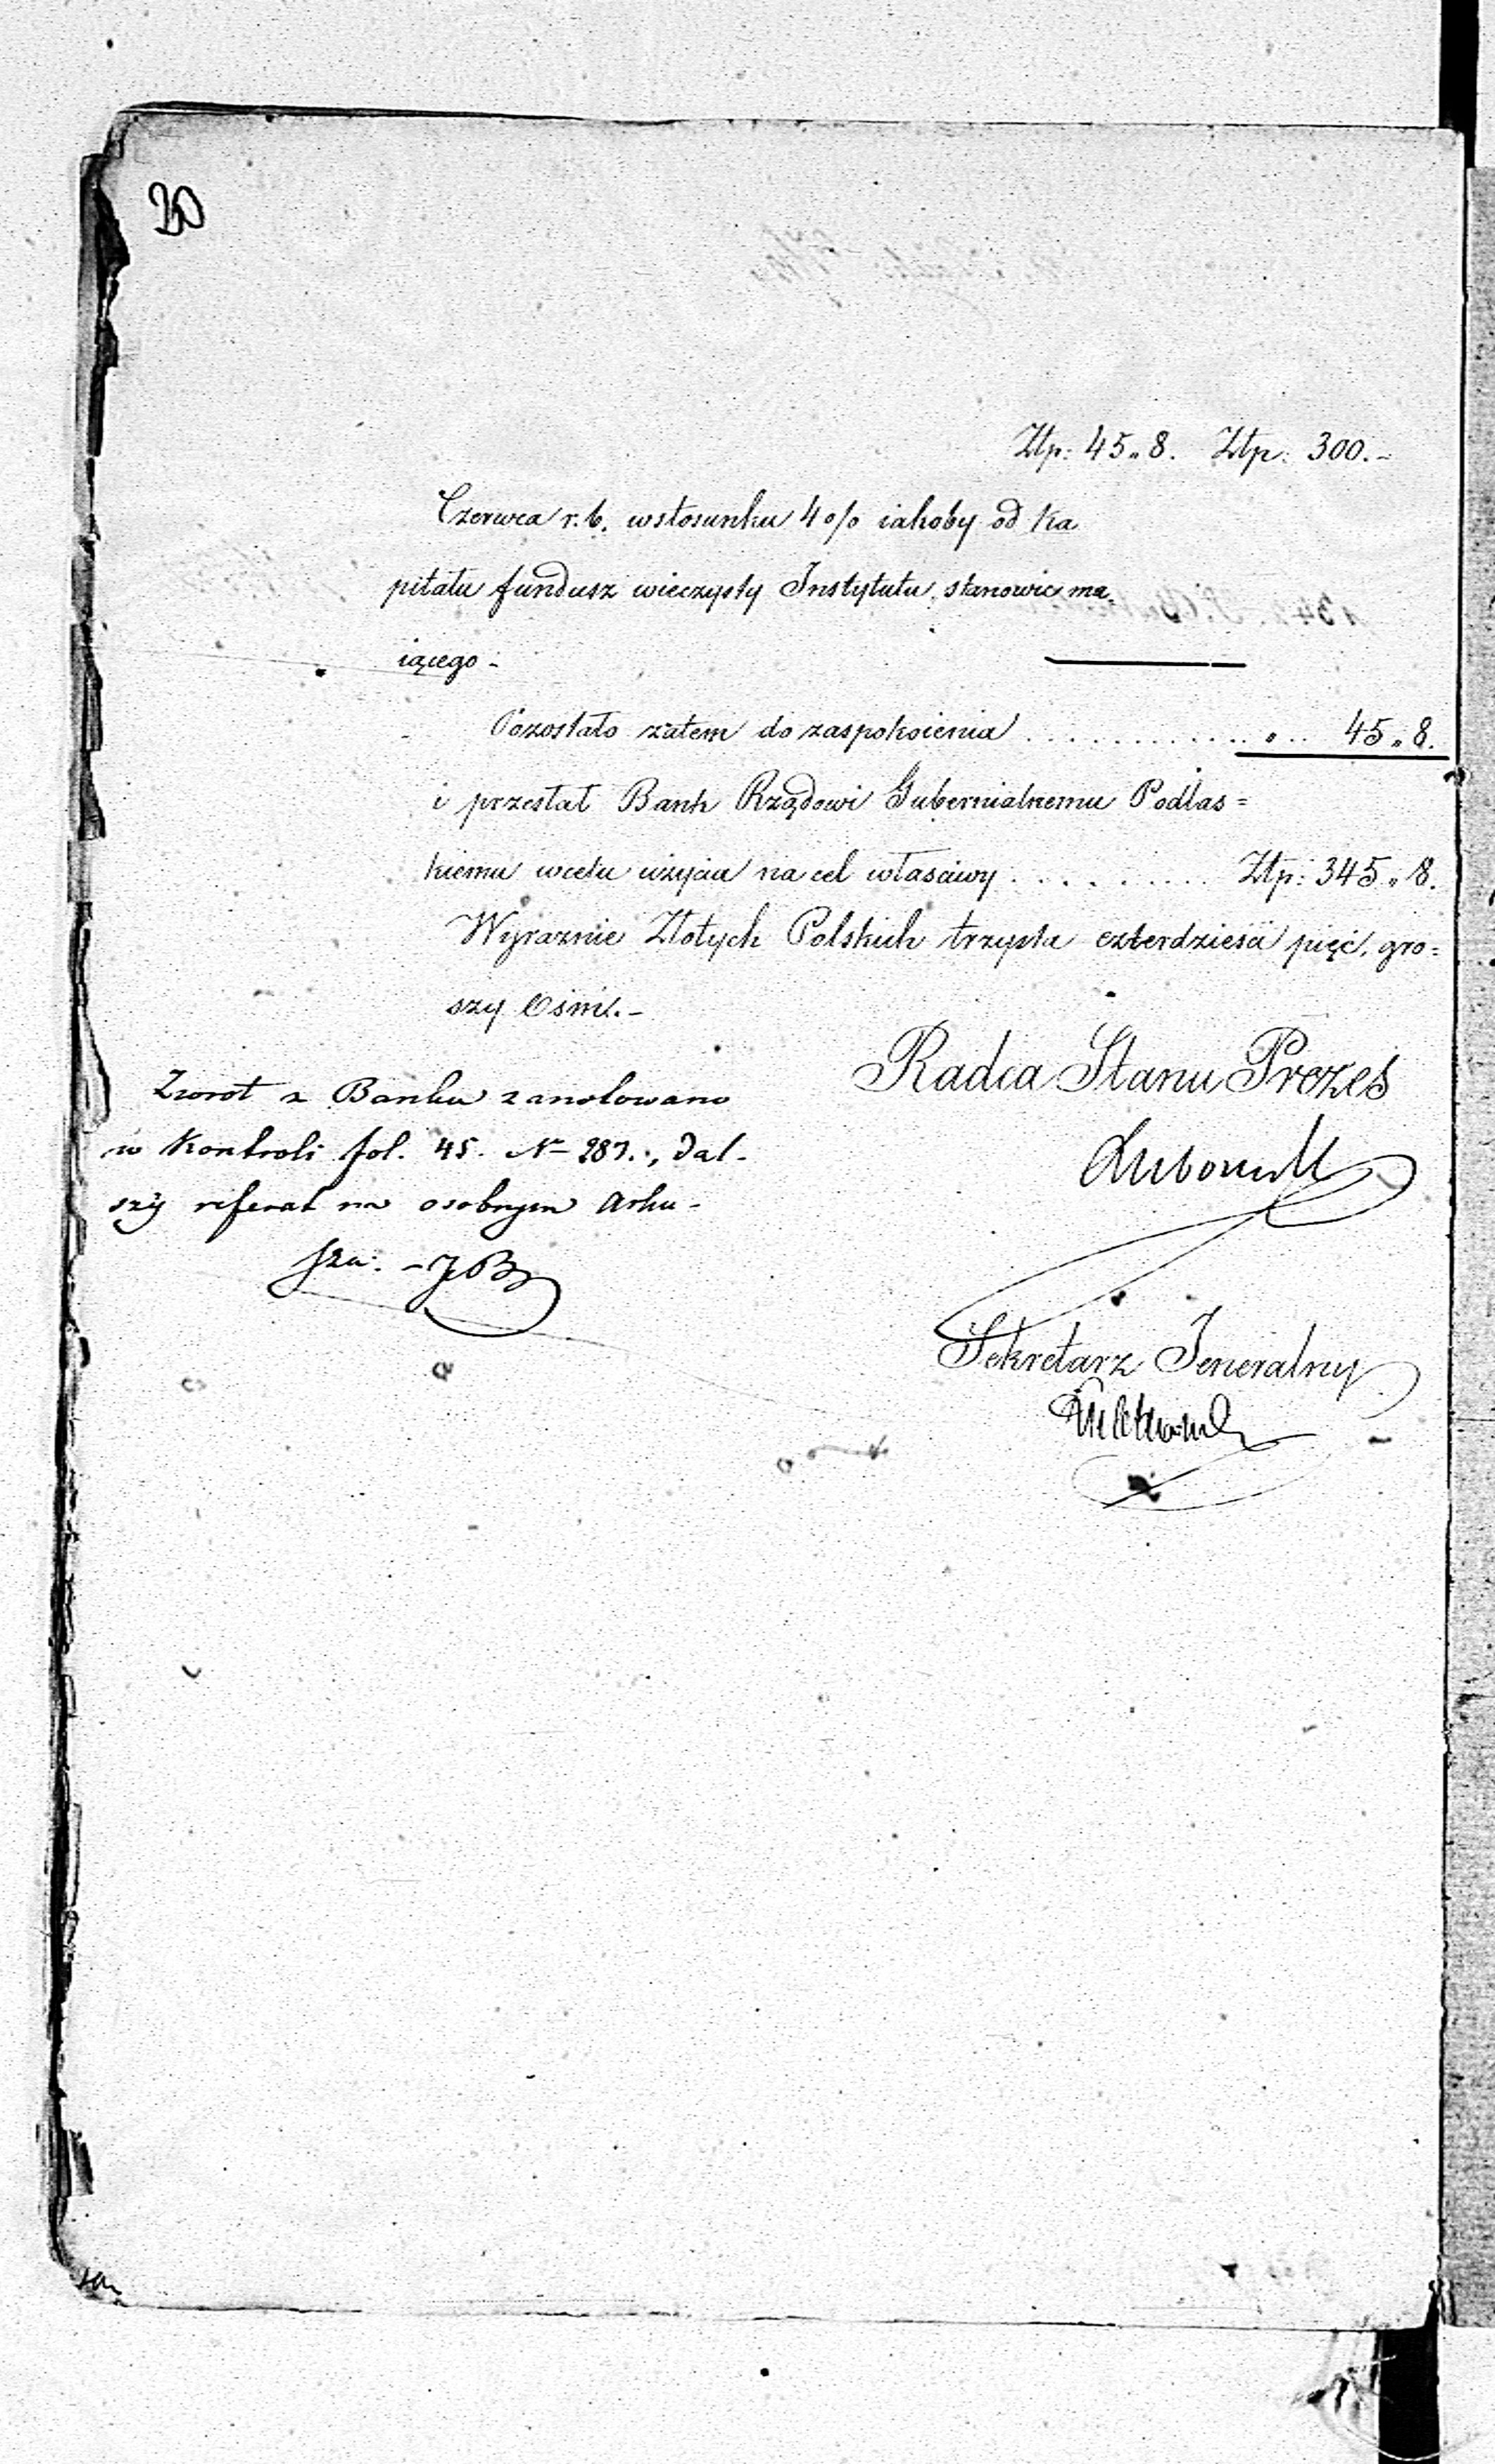 20
Złp: 45 „ 8. Złp: 300.–
Czerwca r. b. wstosunku 4 o/o iakoby od Ka
pitału fundusz wieczysty Instytutu stanowić ma„
iącego –
Pozostało zatem do zaspokoienia . . . . . . . . . . . „ . . 45 „ 8.
i przesłał Bank Rządowi Gubernialnemu Podlas=
kiemu wcelu użycia na cel właściwy . . . . . . . . Złp: 345 „ 8.
Wyraznie Złotych Polskich trzysta czterdzieści pięć, gro=
szy Ośm.–
Radca Stanu Prezes
Lubowidzki
Zwrot z Banku zanotowano
w Kontroli fol. 45. N– 287., dal-
szy referat na osobnym arku-
szu: –
Sekretarz Jeneralny